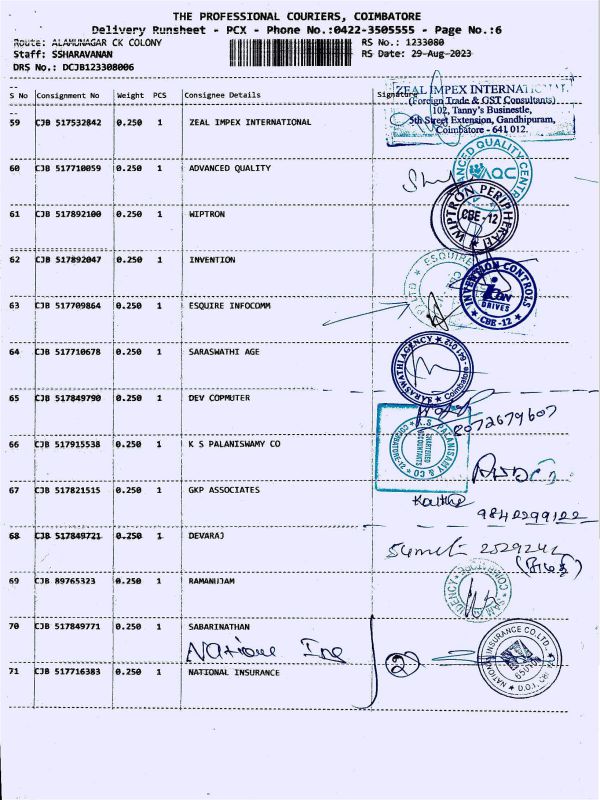 THE PROFESSIONAL COURIERS, COIMBATORE
Delivery Runsheet - PCX - Phone No.:0422-3505555 - Page No.:6
Route: ALAMUNAGAR CK COLONY RS No.: 1233080
Staff: SSHARAVANAN RS Date: 29-Aug-2023
DRS No.: DCJB123308006
S No Consignment No Weight PCS Consignee Details Signature
ZEAL IMPEX INTERNATIONAL
(Foreign Trade & GST Consultants)
102, Tanny's Businestle,
5th Street Extension, Gandhipuram,
Coimbatore - 641 012.
59 CJB 517532842 0.250 1 ZEAL IMPEX INTERNATIONAL
60 CJB 517710059 0.250 1 ADVANCED QUALITY
ADVANCED QUALITY CENTRE
AQC
61 CJB 517892100 0.250 1 WIPTRON
WIPTRON PERIPHERAL
CBE-12
62 CJB 517892047 0.250 1 INVENTION
INVENTION CONTROLS
icon
DRIVES
CBE-12
63 CJB 517709864 0.250 1 ESQUIRE INFOCOMM
ESQUIRE
64 CJB 517710678 0.250 1 SARASWATHI AGE
SARASWATHI AGENCY
Coimbatore
65 CJB 517849790 0.250 1 DEV COPMUTER
66 CJB 517915538 0.250 1 K S PALANISWAMY CO
K.S. PALANISAMY & CO
CHARTERED
ACCOUNTANTS
COIMBATORE-12
67 CJB 517821515 0.250 1 GKP ASSOCIATES
9842299122
68 CJB 517849721 0.250 1 DEVARAJ
69 CJB 89765323 0.250 1 RAMANUJAM
70 CJB 517849771 0.250 1 SABARINATHAN
Natione Ine
2
71 CJB 517716383 0.250 1 NATIONAL INSURANCE
NATIONAL INSURANCE CO. LTD.